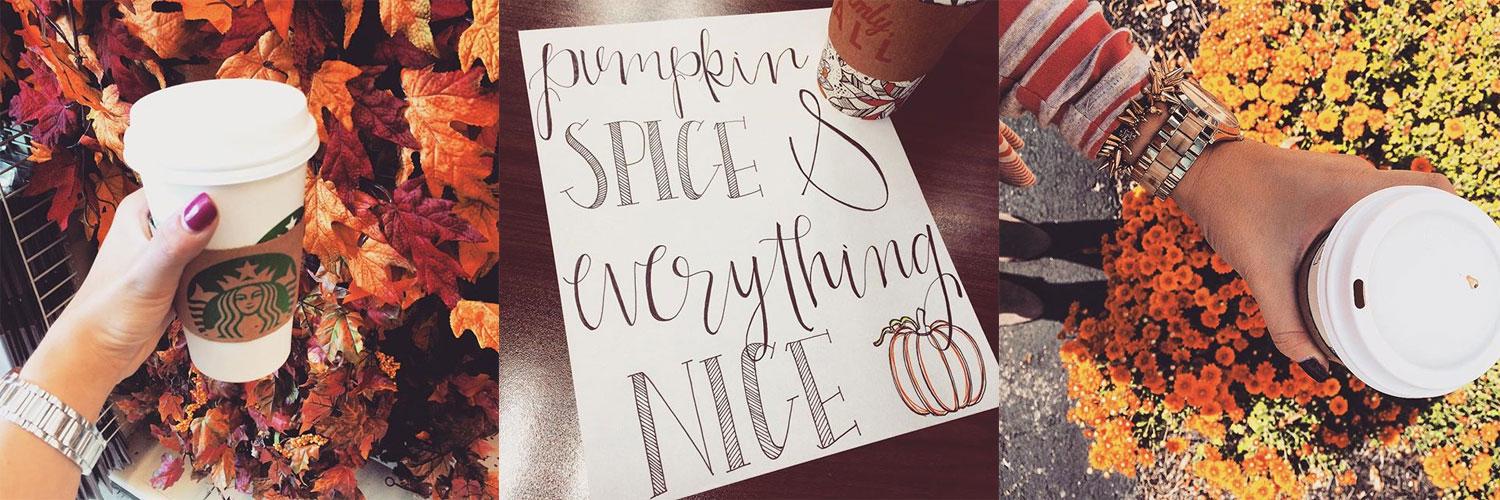 pumpkin
SPICE &
everything
NICE